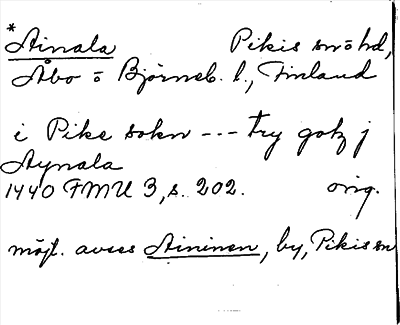 *Ainala Pikis sn o hd,
Åbo o Björneb. l., Finland
i Pike sokn --- try gotz j
Aynala
1440 FMU 3, s. 202. orig.
möjl. avses Aininen, by, Pikis sn